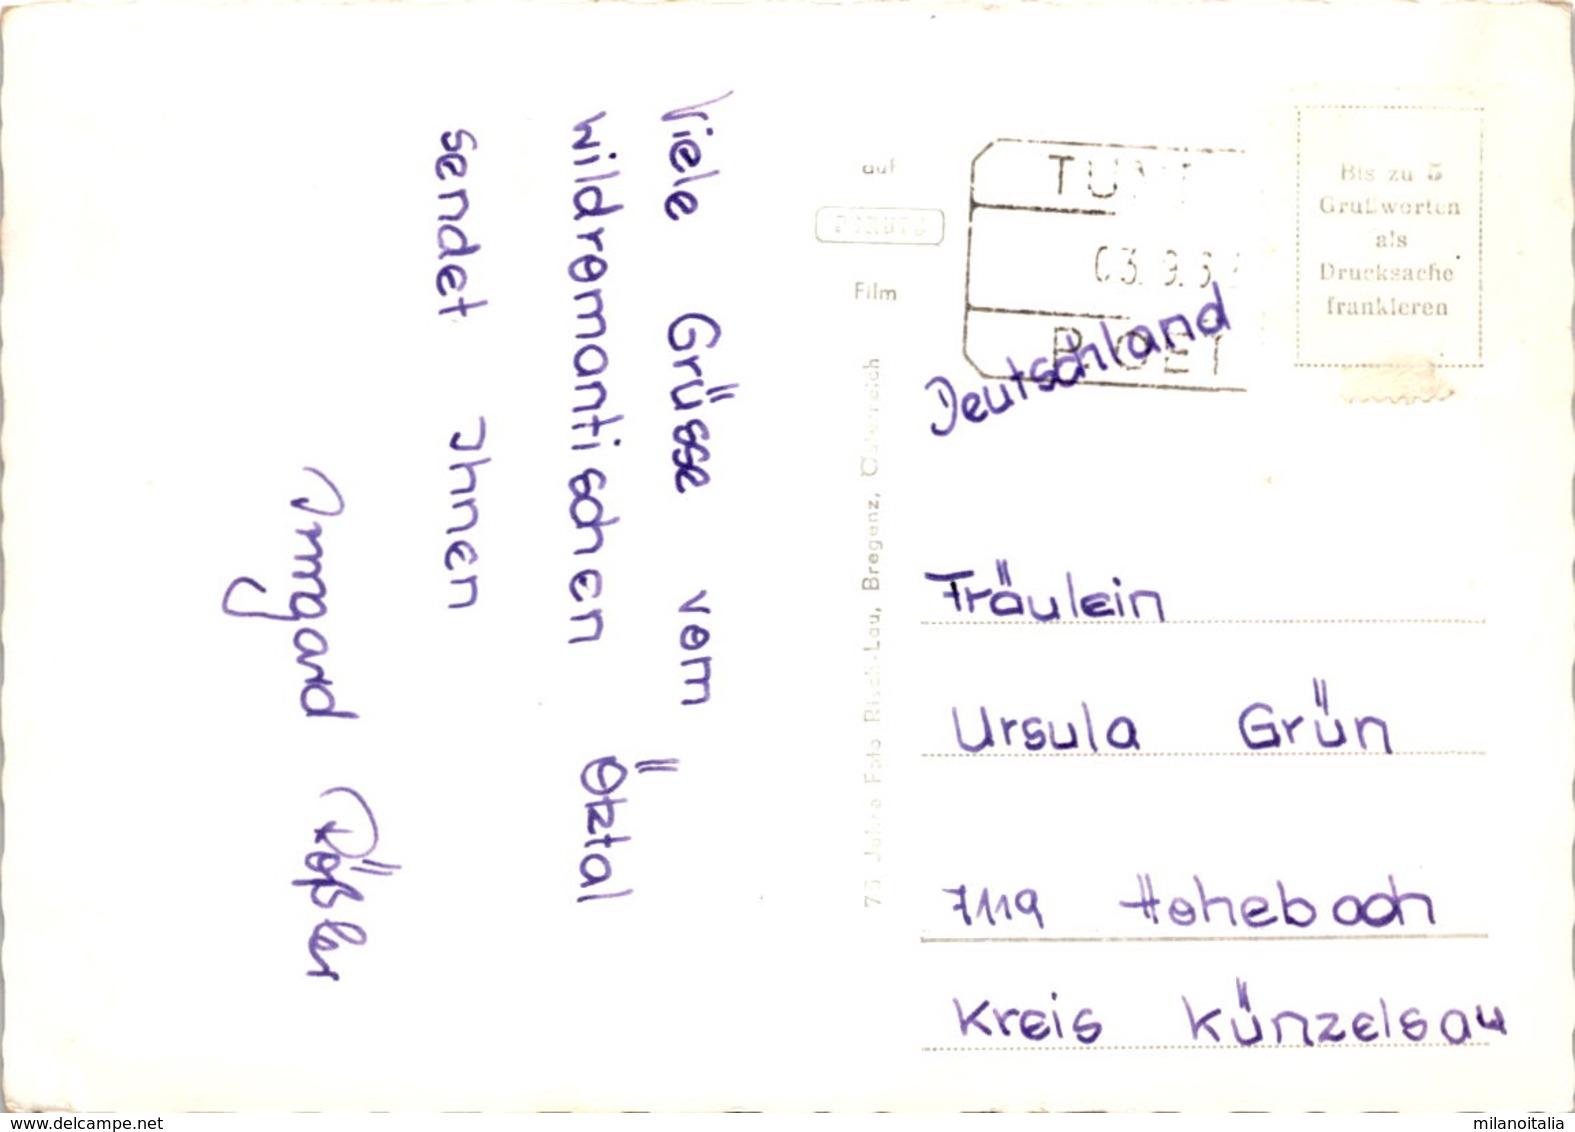 Viele Grüsse vom
wildromantischen Ötztal
sendet Ihnen
Irmgard Rößler
auf
Film
75 Jahre Foto Risch-Lau, Bregenz, Österreich
03. 9. 6
Bis zu 5
Grußworten
als
Drucksache
frankieren
Deutschland
Fräulein
Ursula Grün
7119 Hohebach
Kreis Künzelsau
www.delcampe.net
milanoitalia